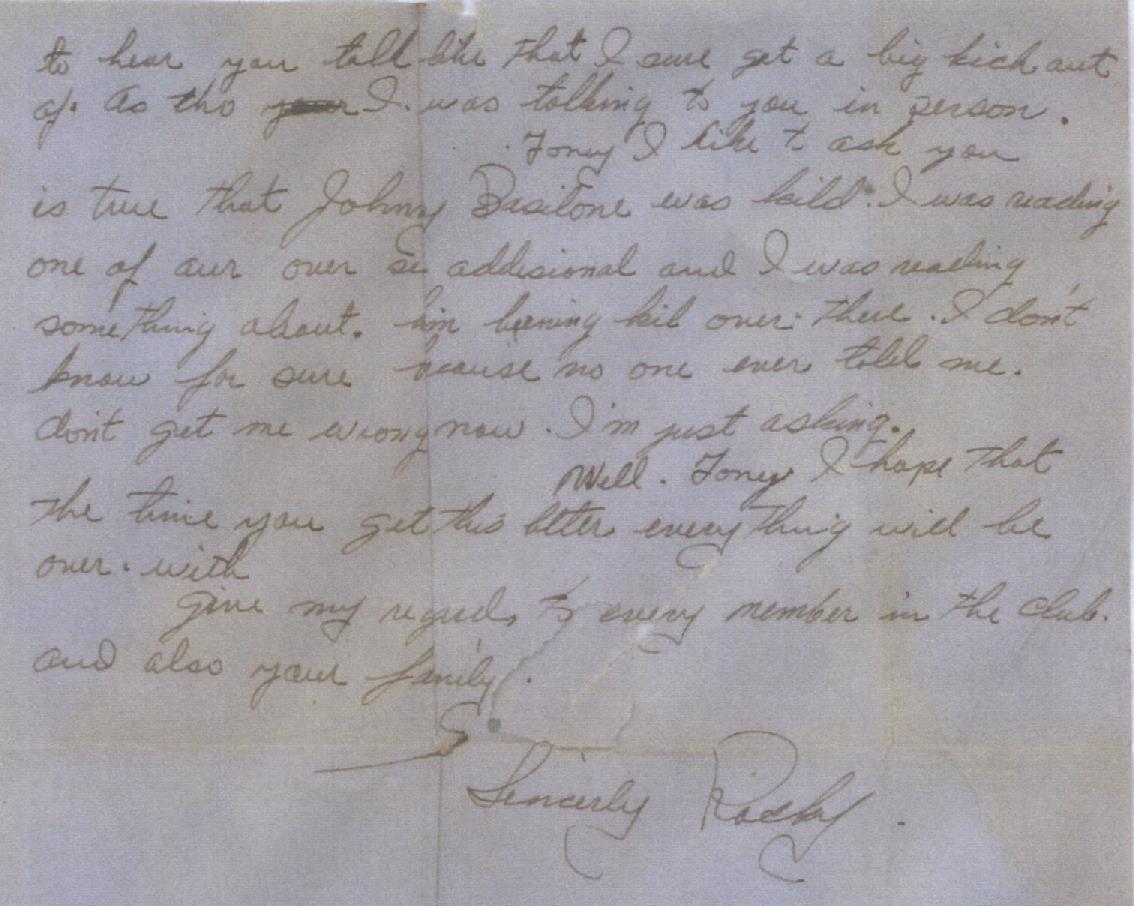 to hear you talk like that I sure get a big kick out
of. As tho I was talking to you in person.
Toney I like to ask you
is true that Johny Basilone was kild. I was reading
one of our over se addisional and I was reading
something about. him being kil over there. I don't
know for sure because no one ever told me.
don't get me wrong now. I'm just asking.
Well. Toney I hope that
the time you get this letter everything will be
over. with
Give my regards to every member in the club.
and also your family.
S
Sincerly Rocky.